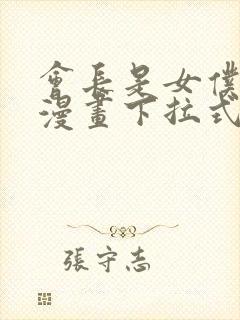 會長是女僕
漫畫下拉式
張守志